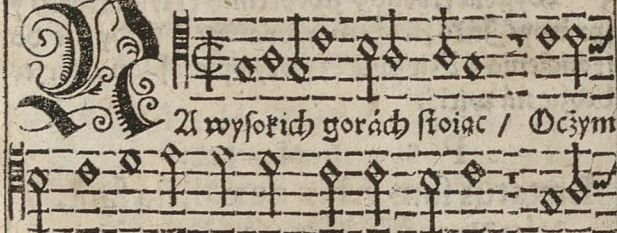 NA wysokich gorách stoiąc / Oczym